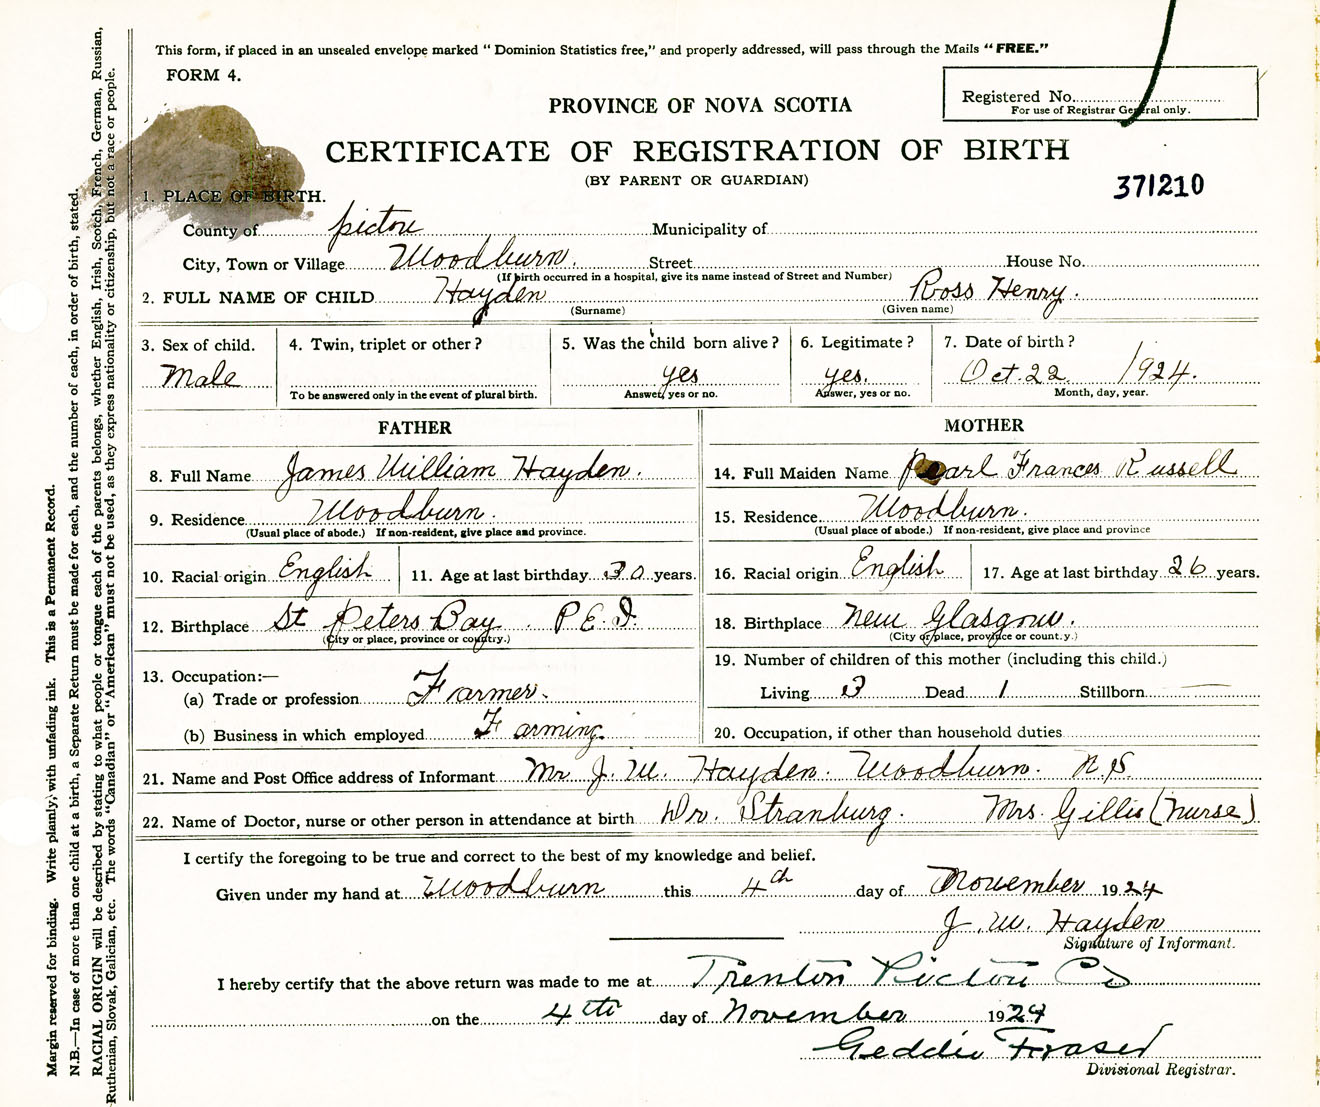 This form, if placed in an unsealed envelope marked "Dominion Statistics free," and properly addressed, will pass through the Mails "FREE."
FORM 4.
Registered No.
For use of Registrar General only.
PROVINCE OF NOVA SCOTIA
CERTIFICATE OF REGISTRATION OF BIRTH
(BY PARENT OR GUARDIAN)
371210
1. PLACE OF BIRTH.
County of pictou Municipality of
City, Town or Village Woodburn. Street House No.
(If birth occurred in a hospital, give its name instead of Street and Number)
2. FULL NAME OF CHILD Hayden Ross Henry.
(Surname) (Given name)
3. Sex of child. 4. Twin, triplet or other? 5. Was the child born alive? 6. Legitimate? 7. Date of birth?
Male yes yes. Oct. 22 1924.
To be answered only in the event of plural birth. Answer, yes or no. Answer, yes or no. Month, day, year.
FATHER
8. Full Name James William Hayden.
9. Residence Woodburn.
(Usual place of abode.) If non-resident, give place and province.
10. Racial origin English 11. Age at last birthday 30 years.
12. Birthplace St Peters Bay. P.E.I.
(City or place, province or country.)
13. Occupation:—
(a) Trade or profession Farmer.
(b) Business in which employed Farming.
MOTHER
14. Full Maiden Name Pearl Frances Russell
15. Residence Woodburn.
(Usual place of abode.) If non-resident, give place and province
16. Racial origin English 17. Age at last birthday 26 years.
18. Birthplace New Glasgow.
(City or place, province or count.y.)
19. Number of children of this mother (including this child.)
Living 3 Dead 1 Stillborn —
20. Occupation, if other than household duties
21. Name and Post Office address of Informant Mr. J. W. Hayden. Woodburn. N.S.
22. Name of Doctor, nurse or other person in attendance at birth Dr. Stranburg. Mrs. Gillis (Nurse).
I certify the foregoing to be true and correct to the best of my knowledge and belief.
Given under my hand at Woodburn this 4th day of November 1924
J. W. Hayden
Signature of Informant.
I hereby certify that the above return was made to me at Trenton Pictou Co
on the 4th day of November 1924
Geddie Fraser
Divisional Registrar.
Margin reserved for binding. Write plainly, with unfading ink. This is a Permanent Record.
N.B.—In case of more than one child at a birth, a Separate Return must be made for each, and the number of each, in order of birth, stated.
RACIAL ORIGIN will be described by stating to what people or tongue each of the parents belongs, whether English, Irish, Scotch, French, German, Russian,
Ruthenian, Slovak, Galician, etc. The words "Canadian" or "American" must not be used, as they express nationality or citizenship, but not a race or people.